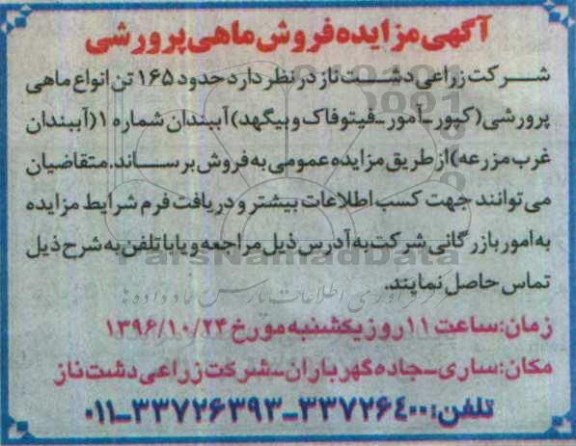 آگهی مزایده فروش ماهی پرورشی
شرکت زراعی دشت ناز در نظر دارد حدود ۱۶۵ تن انواع ماهی
پرورشی (کپور-آمور-فیتوفاک و بیگهد) آببندان شماره ۱ (آببندان
غرب مزرعه) از طریق مزایده عمومی به فروش برساند. متقاضیان
می توانند جهت کسب اطلاعات بیشتر و دریافت فرم شرایط مزایده
به امور بازرگانی شرکت به آدرس ذیل مراجعه و یا با تلفن به شرح ذیل
تماس حاصل نمایند.
زمان: ساعت ۱۱ روز یکشنبه مورخ ۱۳۹۶/۱۰/۲۴
مکان: ساری-جاده گهرباران-شرکت زراعی دشت ناز
تلفن: ۳۳۷۲۶۴۰۰-۳۳۷۲۶۳۹۳-۰۱۱
ParsNamadData